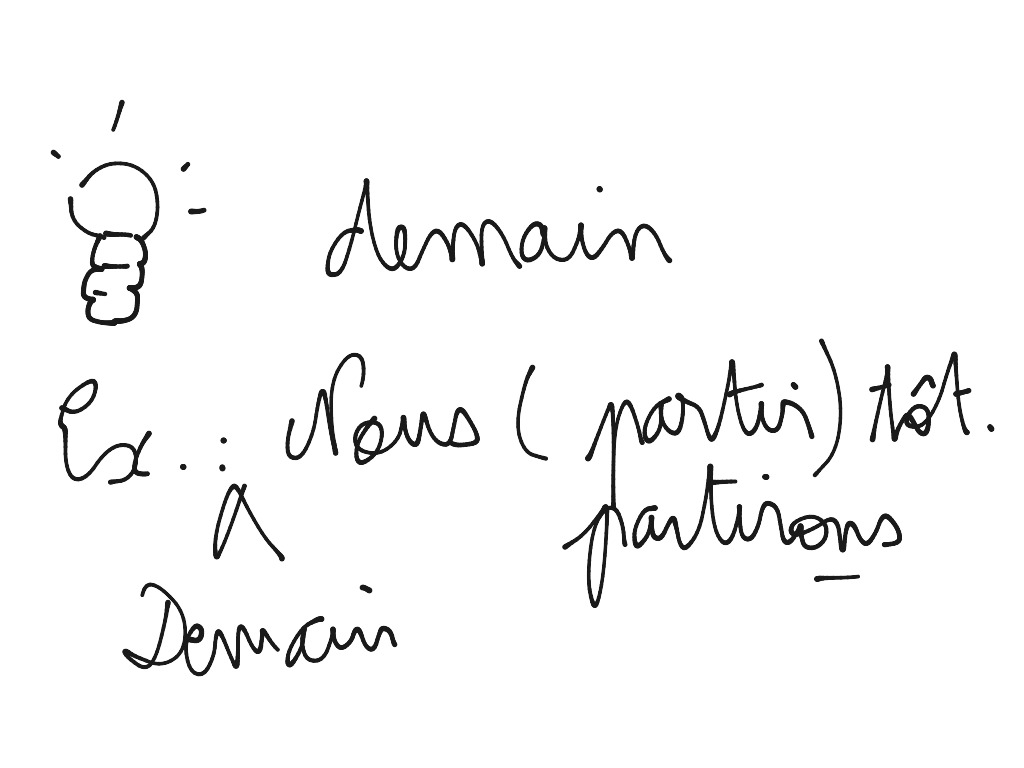 demain
Ex. : Nous (partir) tôt.
partirons
Demain